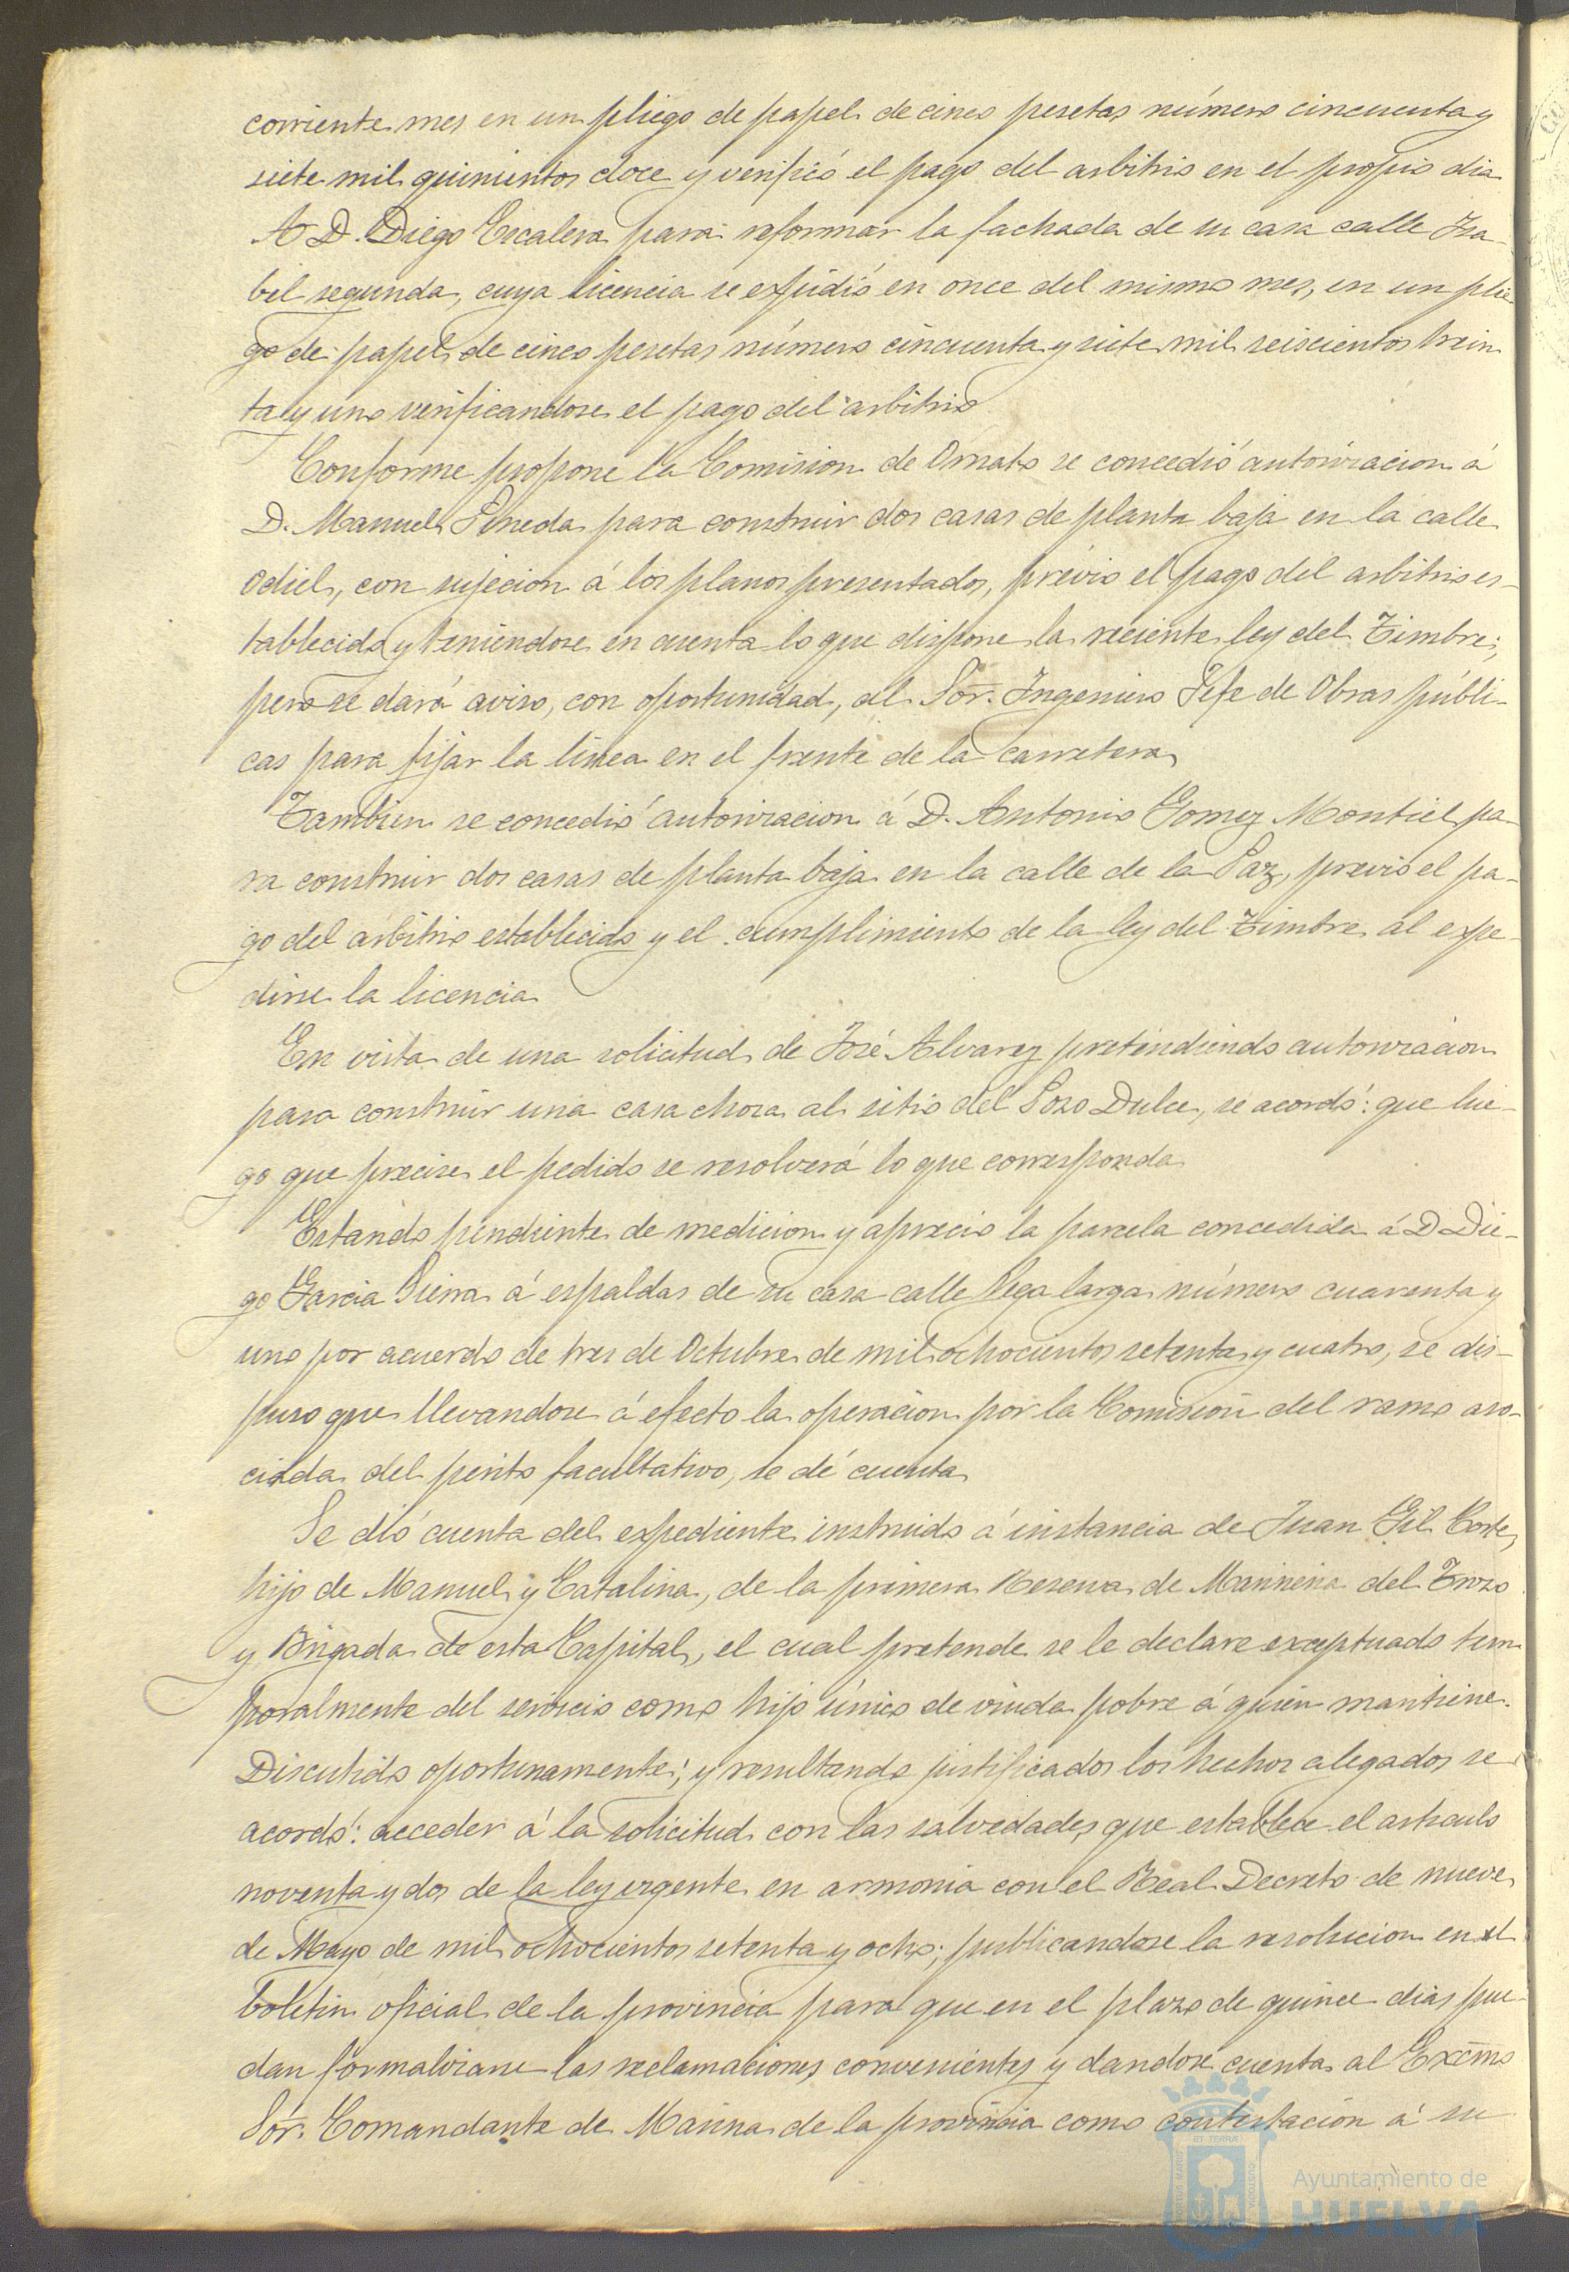 corriente mes en un pliego de papel de cinco pesetas número cincuenta y
siete mil quinientos doce y verificó el pago del arbitrio en el propio dia.
A D. Diego Escalera para reformar la fachada de su casa calle Isa-
bel segunda, cuya licencia se expidió en once del mismo mes, en un plie-
go de papel de cinco pesetas número cincuenta y siete mil seiscientos trein
ta y uno verificandose el pago del arbitrio
Conforme propone la Comision de Ornato se concedió autorizacion á
D. Manuel Pineda para construir dos casas de planta baja en la calle
Odiel, con sujecion á los planos presentados, prévio el pago del arbitrio es-
tablecido y teniendose en cuenta lo que dispone la reciente ley del Timbre;
pero se dará aviso, con oportunidad, al Sor. Ingeniero Jefe de Obras públi-
cas para fijar la linea en el frente de la carretera
Tambien se concedió autorizacion á D. Antonio Gomez Montiel pa-
ra construir dos casas de planta baja en la calle de la Paz, previo el pa-
go del arbitrio establecido y el cumplimiento de la ley del Timbre al expe-
dirse la licencia
En vista de una solicitud de José Alvarez pretendiendo autorizacion
para construir una casa choza al sitio del Pozo Dulce, se acordó: que lue-
go que precise el pedido se resolverá lo que corresponda
Estando pendiente de medicion y aprecio la parcela concedida á D Die-
go Garcia Sierra á espaldas de su casa calle Vega larga número cuarenta y
uno por acuerdo de tres de Octubre de mil ochocientos setenta y cuatro, se dis-
puso que llevandose á efecto la operacion por la Comision del ramo aso-
ciada del perito facultativo, se dé cuenta
Se dió cuenta del expediente instruido á instancia de Juan Gil Corte,
hijo de Manuel y Catalina, de la primera Reserva de Marineria del Trozo
y Brigada de esta Capital, el cual pretende se le declare exceptuado tem
poralmente del servicio como hijo único de viuda pobre á quien mantiene.
Discutido oportunamente; y resultando justificados los hechos alegados se
acordó: acceder á la solicitud con las salvedades que establece el articulo
noventa y dos de la ley vigente en armonia con el Real Decreto de nueve
de Mayo de mil ochocientos setenta y ocho; publicandose la resolucion en el
boletin oficial de la provincia para que en el plazo de quince dias pue-
dan formalizarse las reclamaciones convenientes y dandose cuenta al Excmo
Sor. Comandante de Marina de la provincia como contestacion á su
Ayuntamiento de
HUELVA